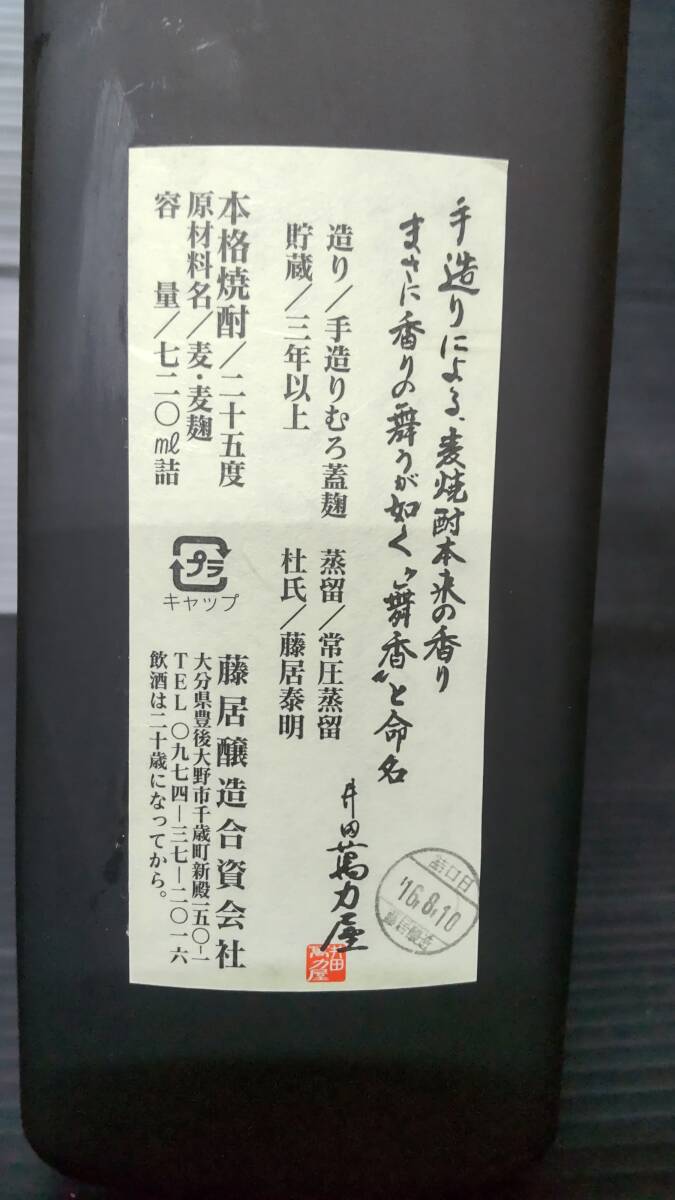 手造りによる、麦焼酎本来の香り
まさに香りの舞うが如く〝舞香〟と命名
井田萬力屋
井田
萬力屋
詰口日
'16.8.10
藤居醸造
造り/手造りむろ蓋麹 蒸留/常圧蒸留
貯蔵/三年以上 杜氏/藤居泰明
本格焼酎/二十五度
原材料名/麦・麦麹
容 量/七二〇㎖詰
プラ
キャップ
藤居醸造合資会社
大分県豊後大野市千歳町新殿一五〇−一
TEL 〇九七四−三七−二〇一六
飲酒は二十歳になってから。